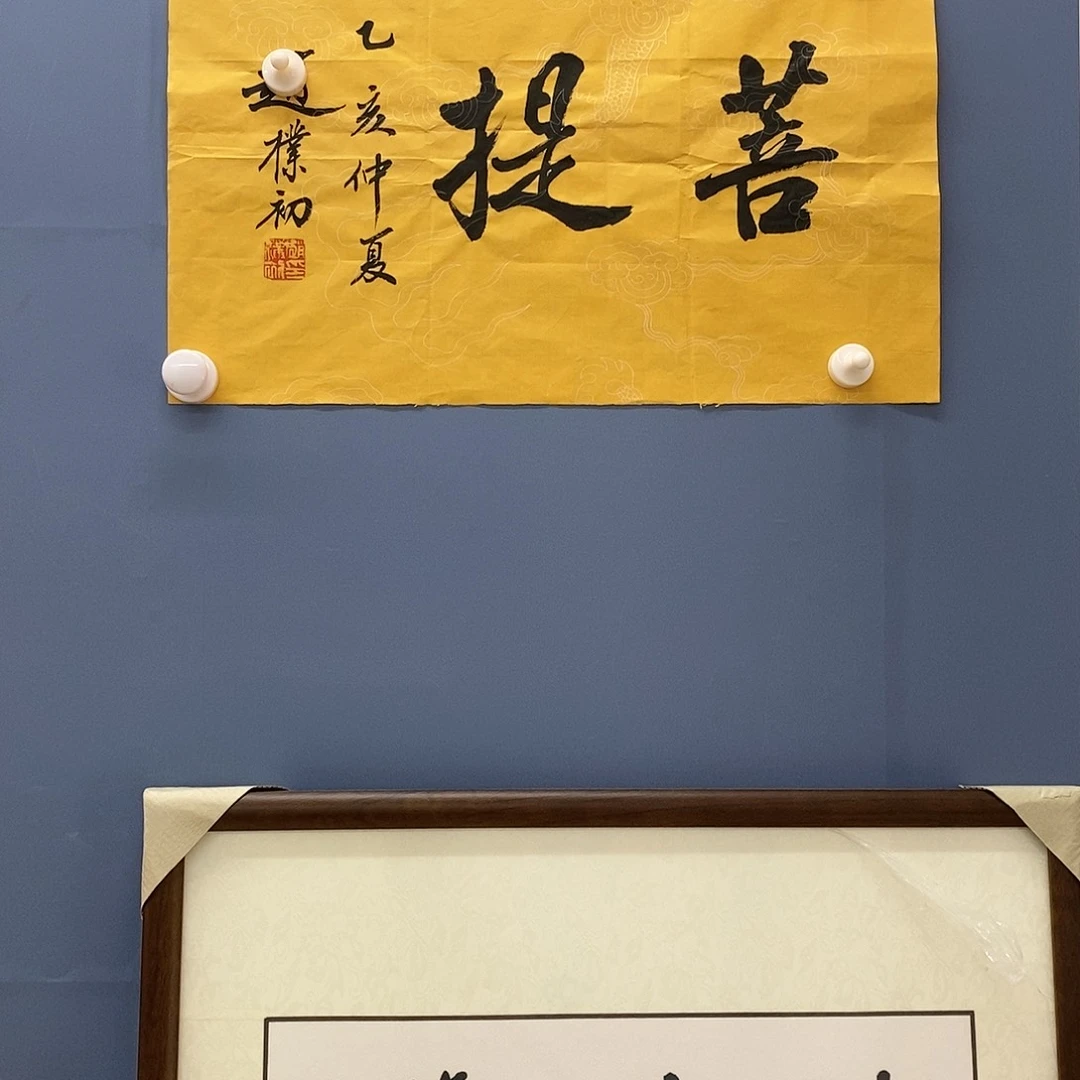 菩提
乙亥仲夏
趙樸初